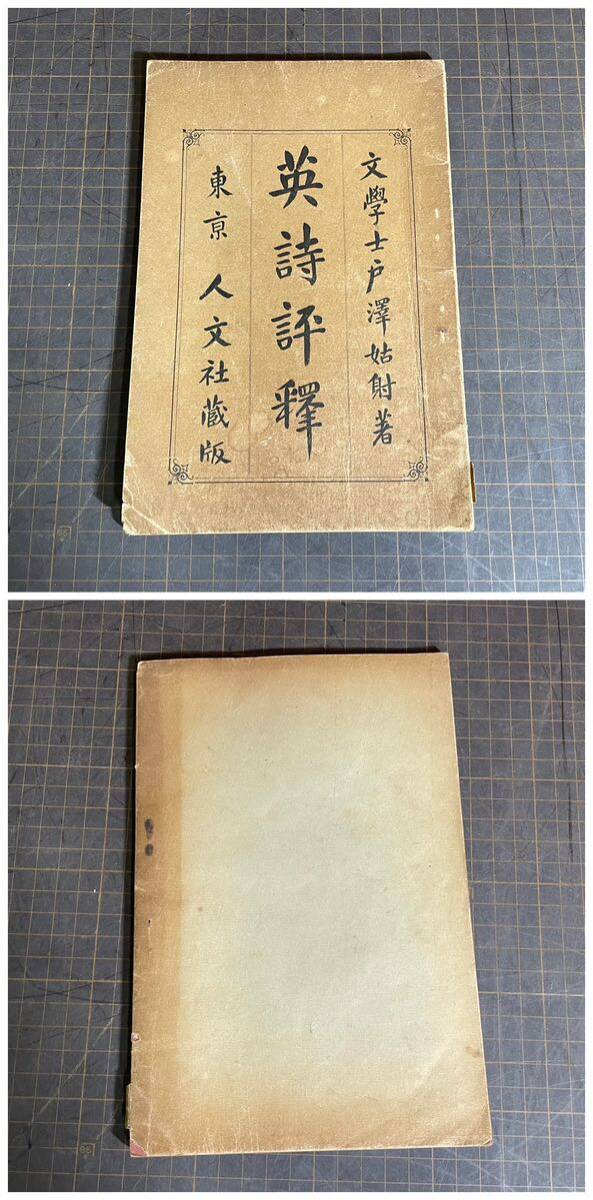 文學士戸澤姑射著
英詩評釋
東京 人文社藏版